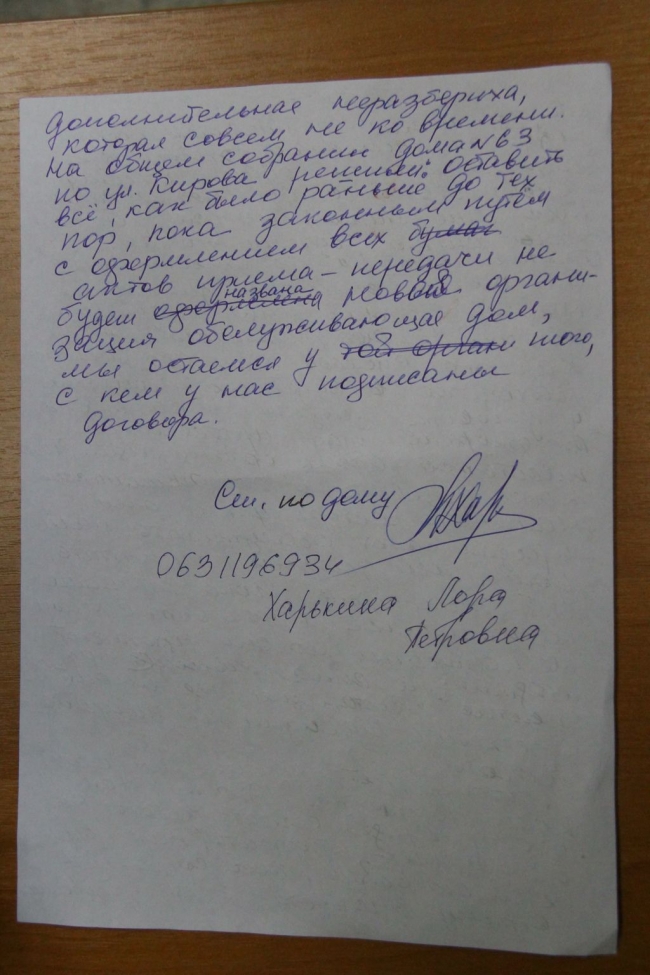 дополнительная неразбериха,
которая совсем не ко времени.
На общем собрании дома №63
по ул. Кирова решили: оставить
всё, как было раньше до тех
пор, пока законным путём
с оформлением всех бумаг
актов приема-передачи не
будет оформлена названа новая органи-
зация обслуживающая дом,
мы остаемся у той органи того,
с кем у нас подписаны
договора.
по дому
0631196934
Харькина Лора
Петровна